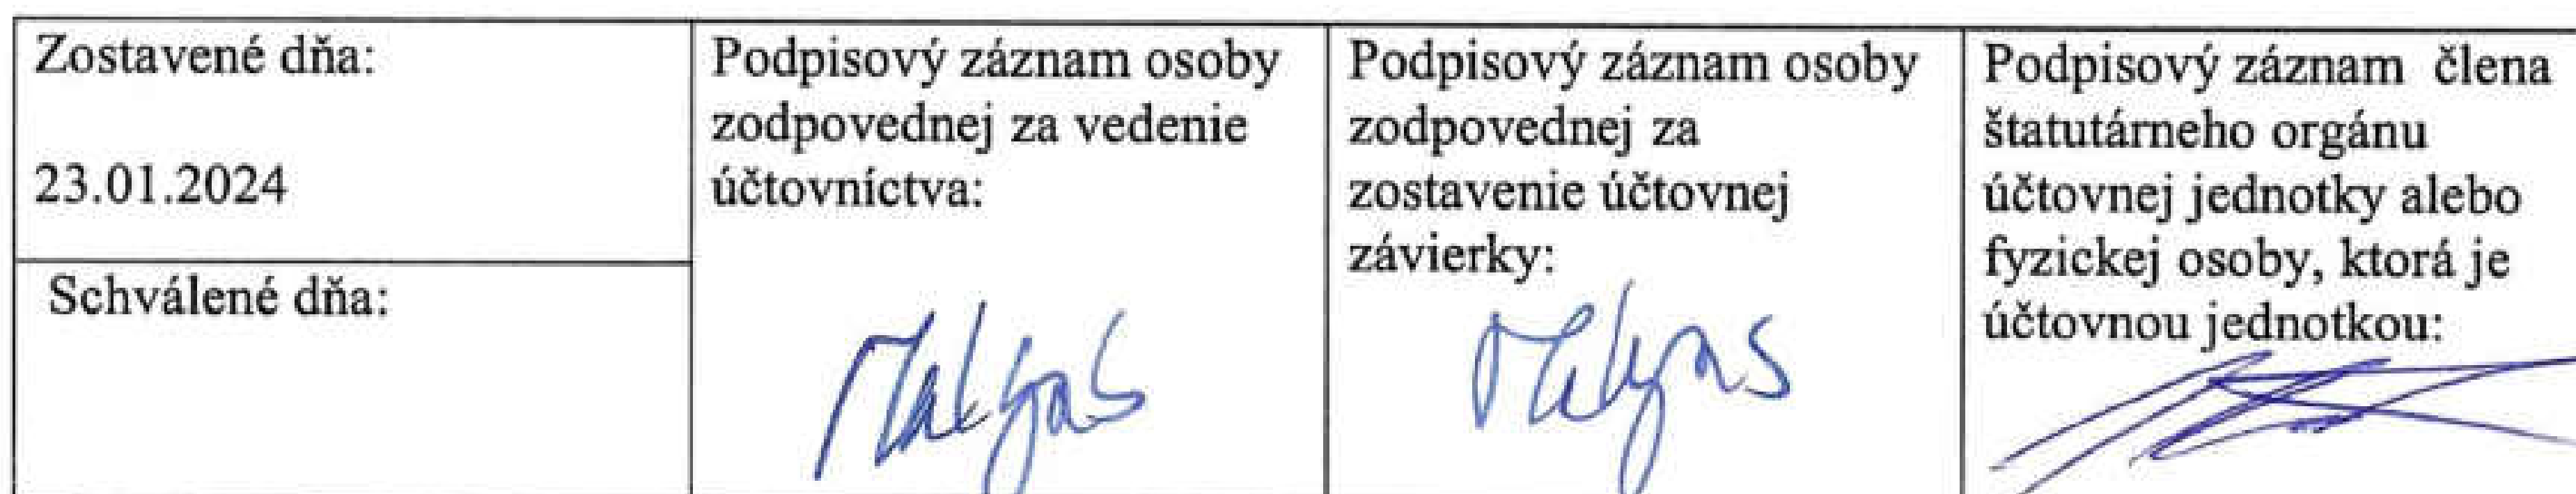 Zostavené dňa:
23.01.2024
Schválené dňa:
Podpisový záznam osoby
zodpovednej za vedenie
účtovníctva:
Podpisový záznam osoby
zodpovednej za
zostavenie účtovnej
závierky:
Podpisový záznam člena
štatutárneho orgánu
účtovnej jednotky alebo
fyzickej osoby, ktorá je
účtovnou jednotkou: